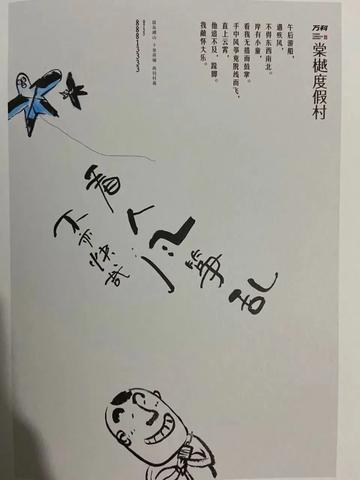 万科
棠樾度假村
午后游船，
遇疾风，
不得东西南北。
岸有小童，
看我无措而鼓掌。
手中风筝竟脱线而飞，
直上云霄，
他追不及，跺脚。
我敞怀大乐。
看人风筝乱
不亦快哉